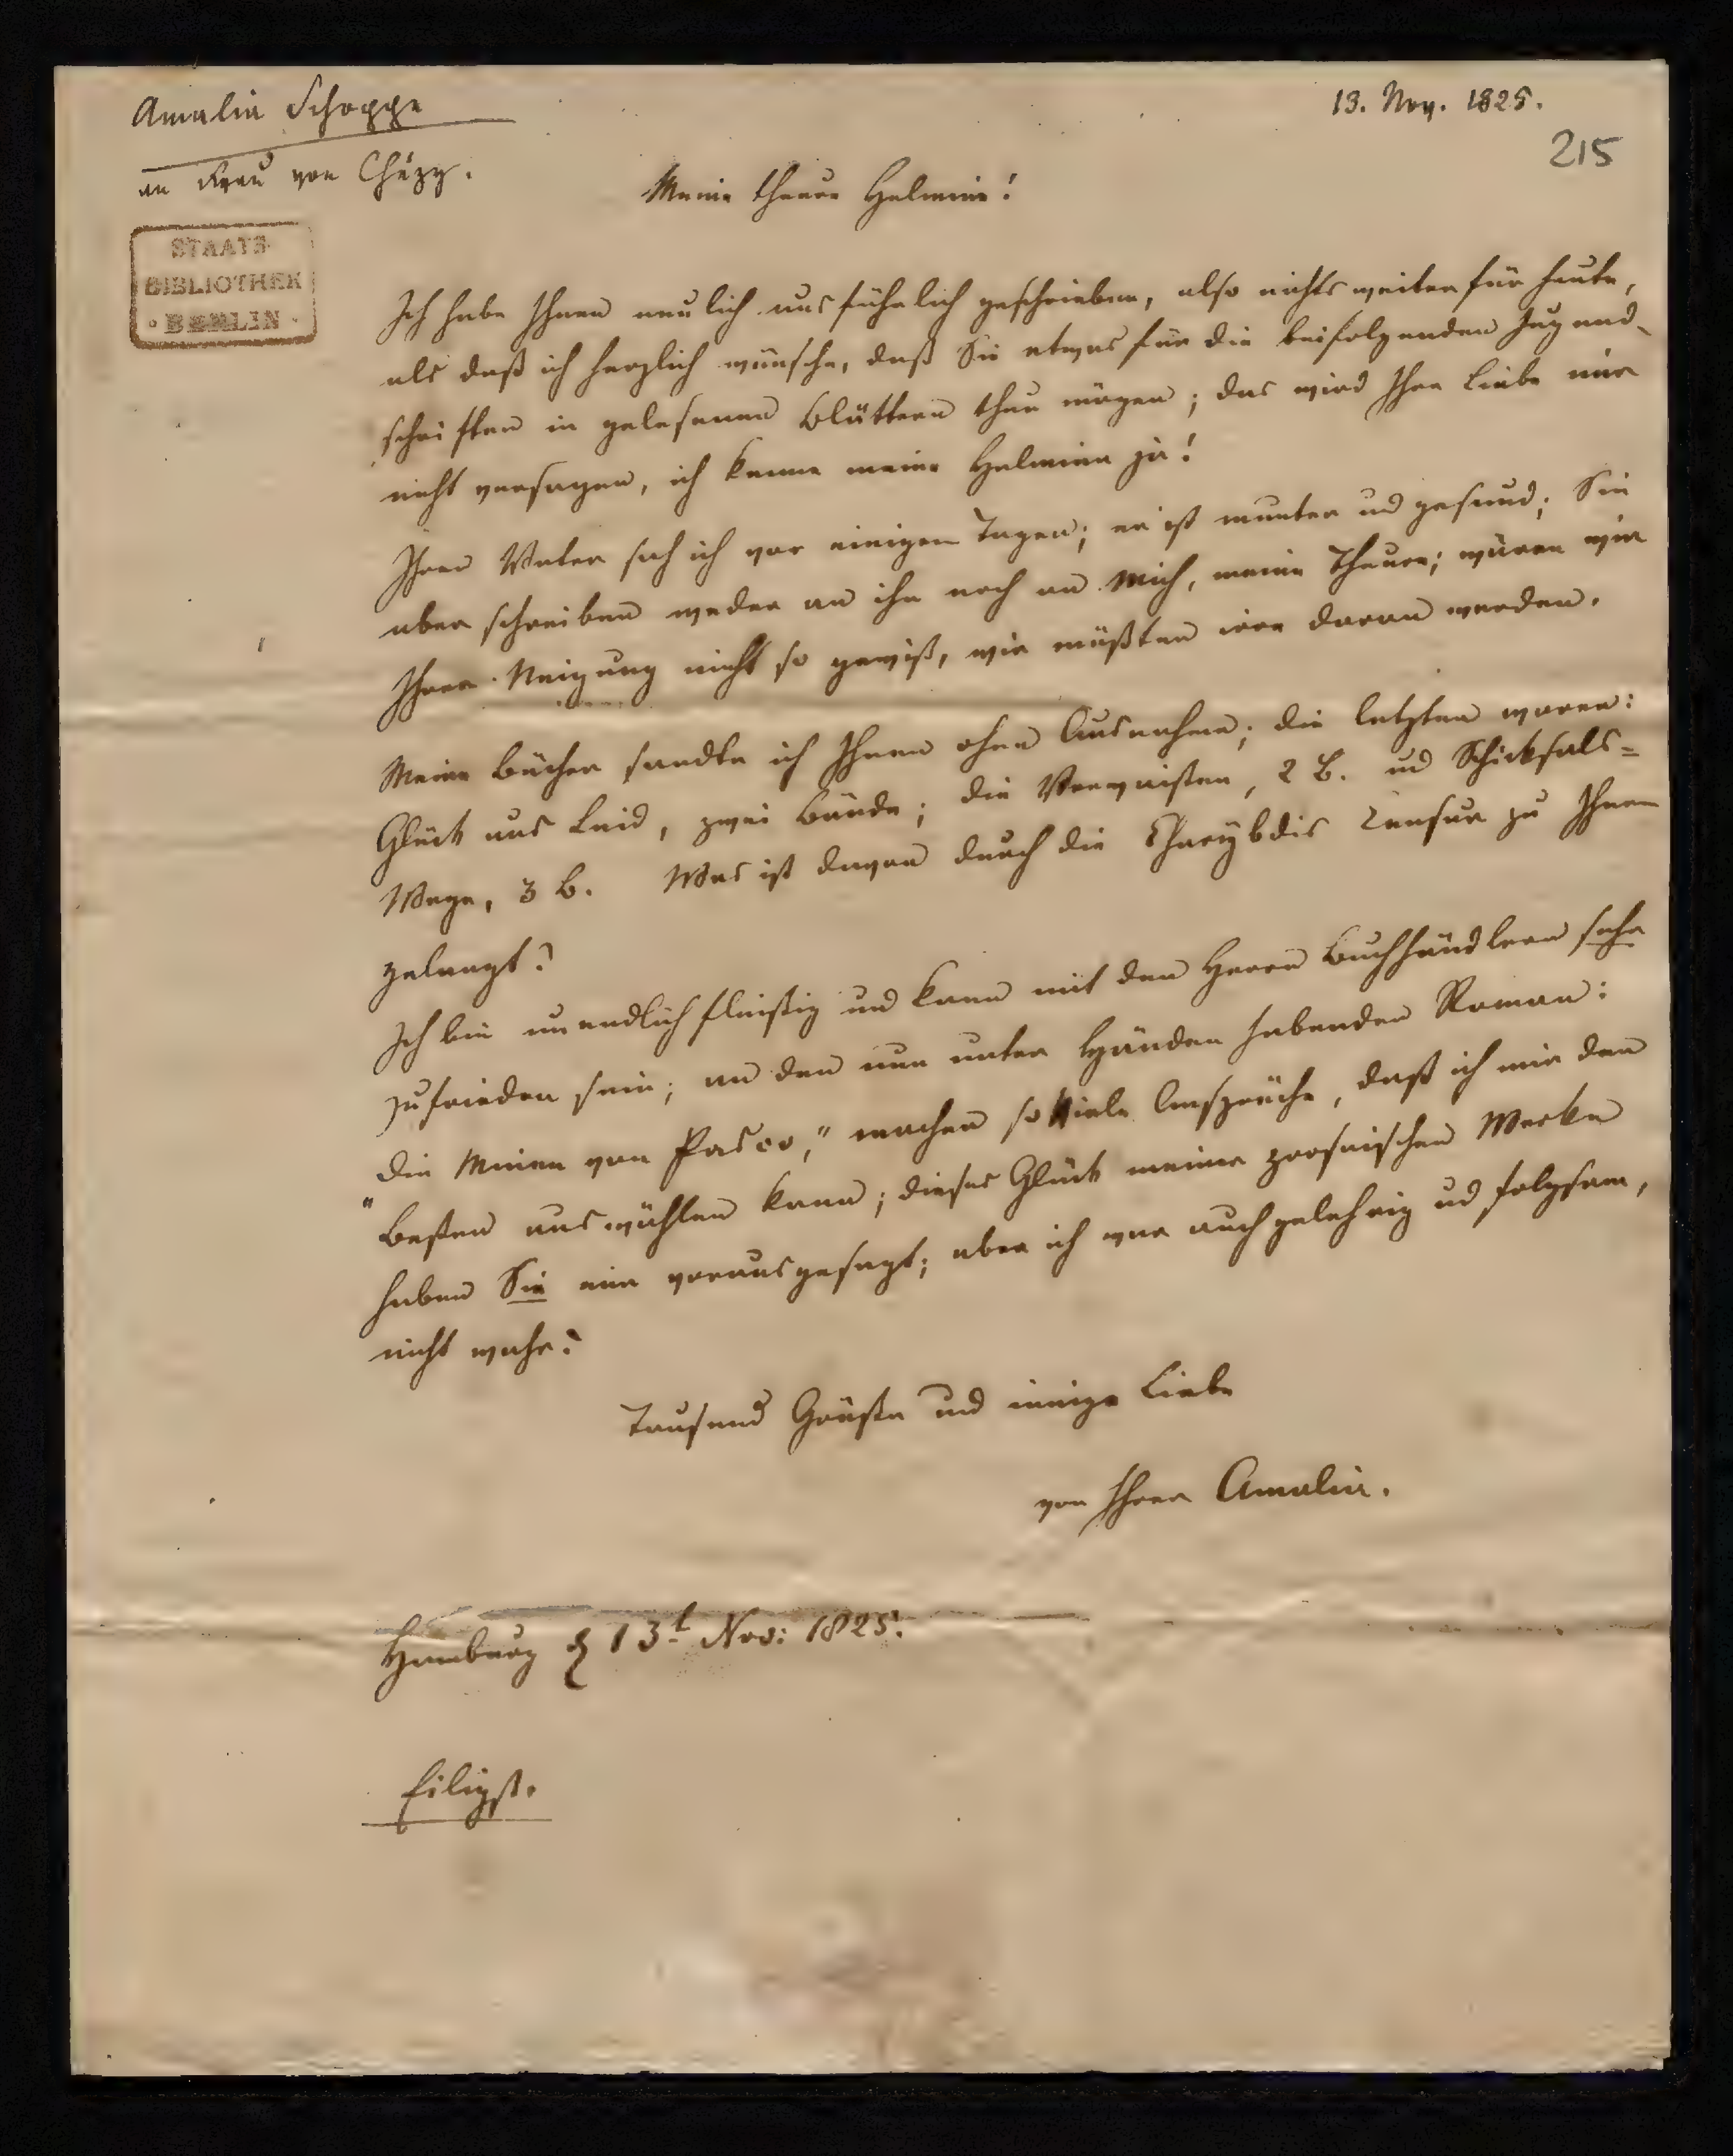 Amalia Schoppe
13. Nov. 1825.
an Frau von Chézy.
215
Meine theure Helmine!
STAATS-
BIBLIOTHEK
· BERLIN ·
Ich habe Ihnen neulich ausführlich geschrieben, also nichts weiter für heute,
als daß ich herzlich wünsche, daß Sie etwas für die beifolgenden Jugend-
schriften in gelesenen Blättern thun mögen; das wird Ihre Liebe mir
nicht versagen, ich kenne meine Helmine ja!
Ihren Vater sah ich vor einigen Tagen; er ist munter und gesund; Sie
aber schreiben weder an ihn noch an mich, meine Theure; wären wir
Ihrer Neigung nicht so gewiß, wir müßten irre daran werden.
Meine Bücher sandte ich Ihnen ohne Ausnahme; die letzten waren:
Glück aus Leid, zwei Bände; die Verwaisten, 2 B. und Schicksals=
Wege, 3 B. Was ist davon durch die Charybdis Censur zu Ihnen
gelangt?
Ich bin unendlich fleißig und kann mit den Herrn Buchhändlern sehr
zufrieden sein; an den nun unter Händen habenden Roman:
„Die Minen von Pasco," machen so viele Ansprüche, daß ich mir den
Besten auswählen kann; dieses Glück meiner prosaischen Werke
haben Sie mir vorausgesagt; aber ich war auch gelehrig und folgsam,
nicht wahr?
Tausend Grüße und innige Liebe
von Ihrer Amalia.
Hamburg d 13t Nov: 1825.
Eiligst.